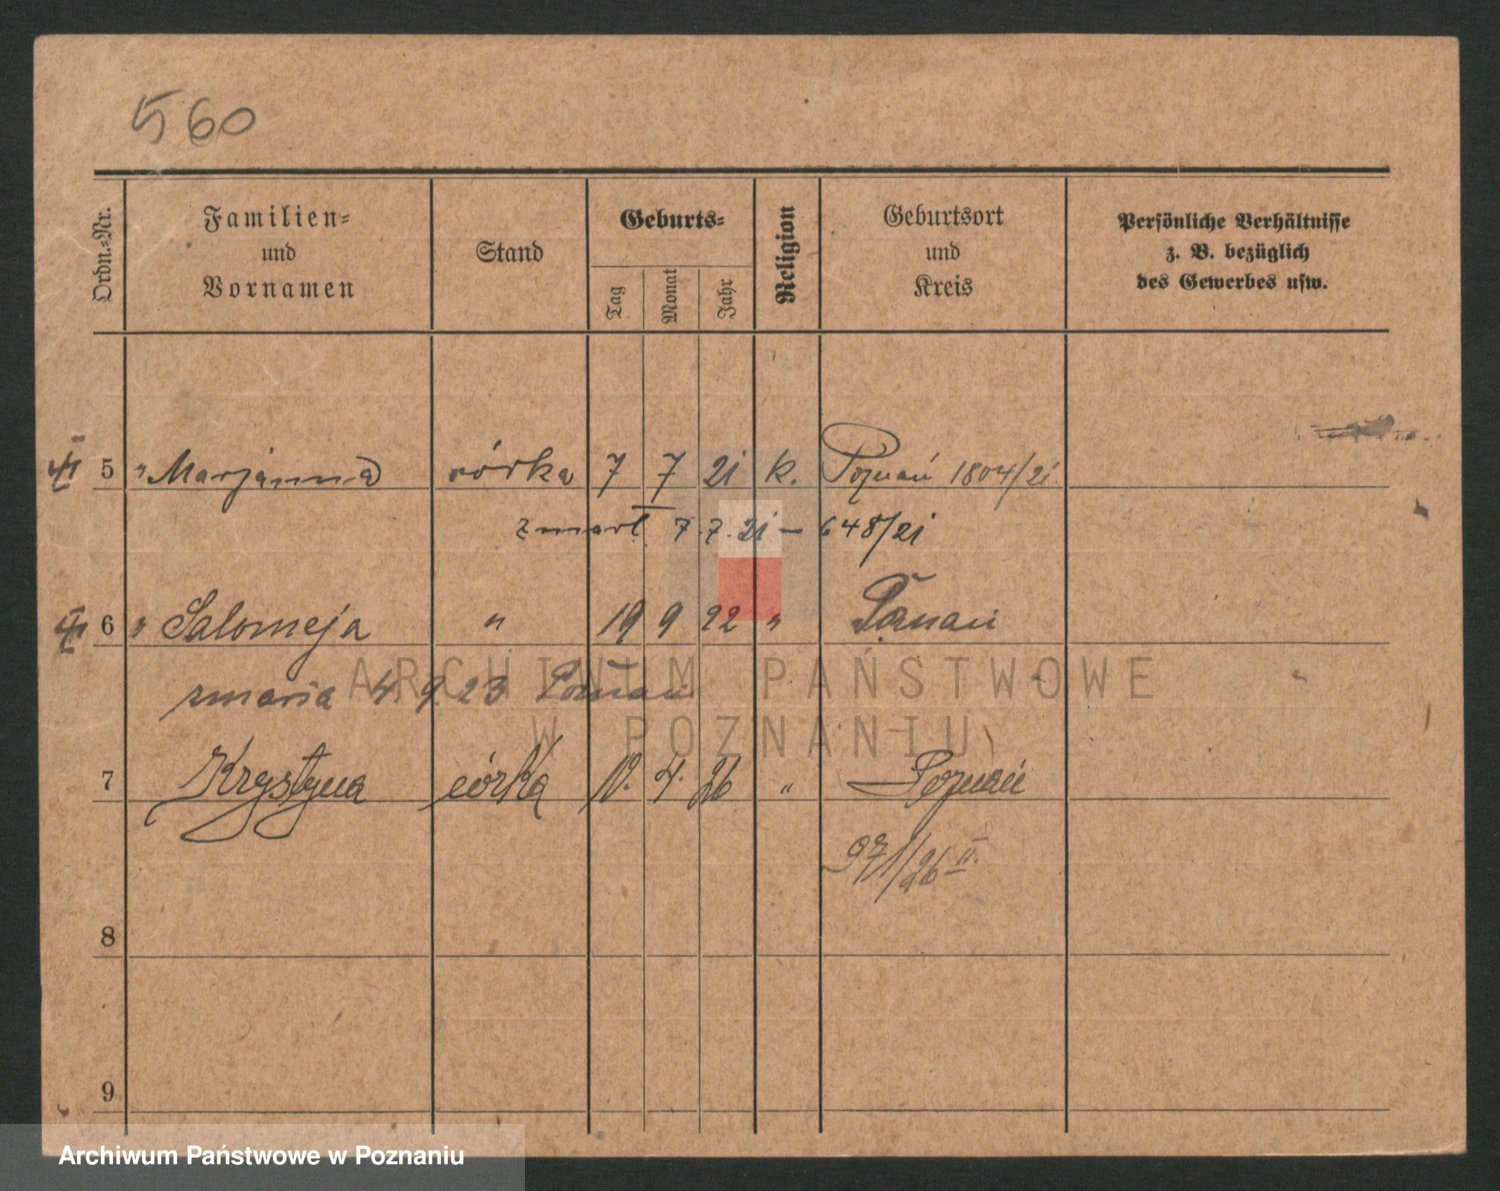 560
Ordn.-Nr.
Familien-
und
Vornamen
Stand
Geburts-
Tag
Monat
Jahr
Religion
Geburtsort
und
Kreis
Persönliche Verhältnisse
z. B. bezüglich
des Gewerbes usw.
5 " Marjanna córka 7 7 21 k. Poznań 1804/21
zmarł. 7.7.21 – 648/21
6 " Salomeja " 19 9 22 " Poznań
zmarła 4 9 23 Poznań
7 Krystyna córka 10. 4. 26 " Poznań
971/26 II.
8
9
ARCHIWUM PAŃSTWOWE
W POZNANIU
Archiwum Państwowe w Poznaniu